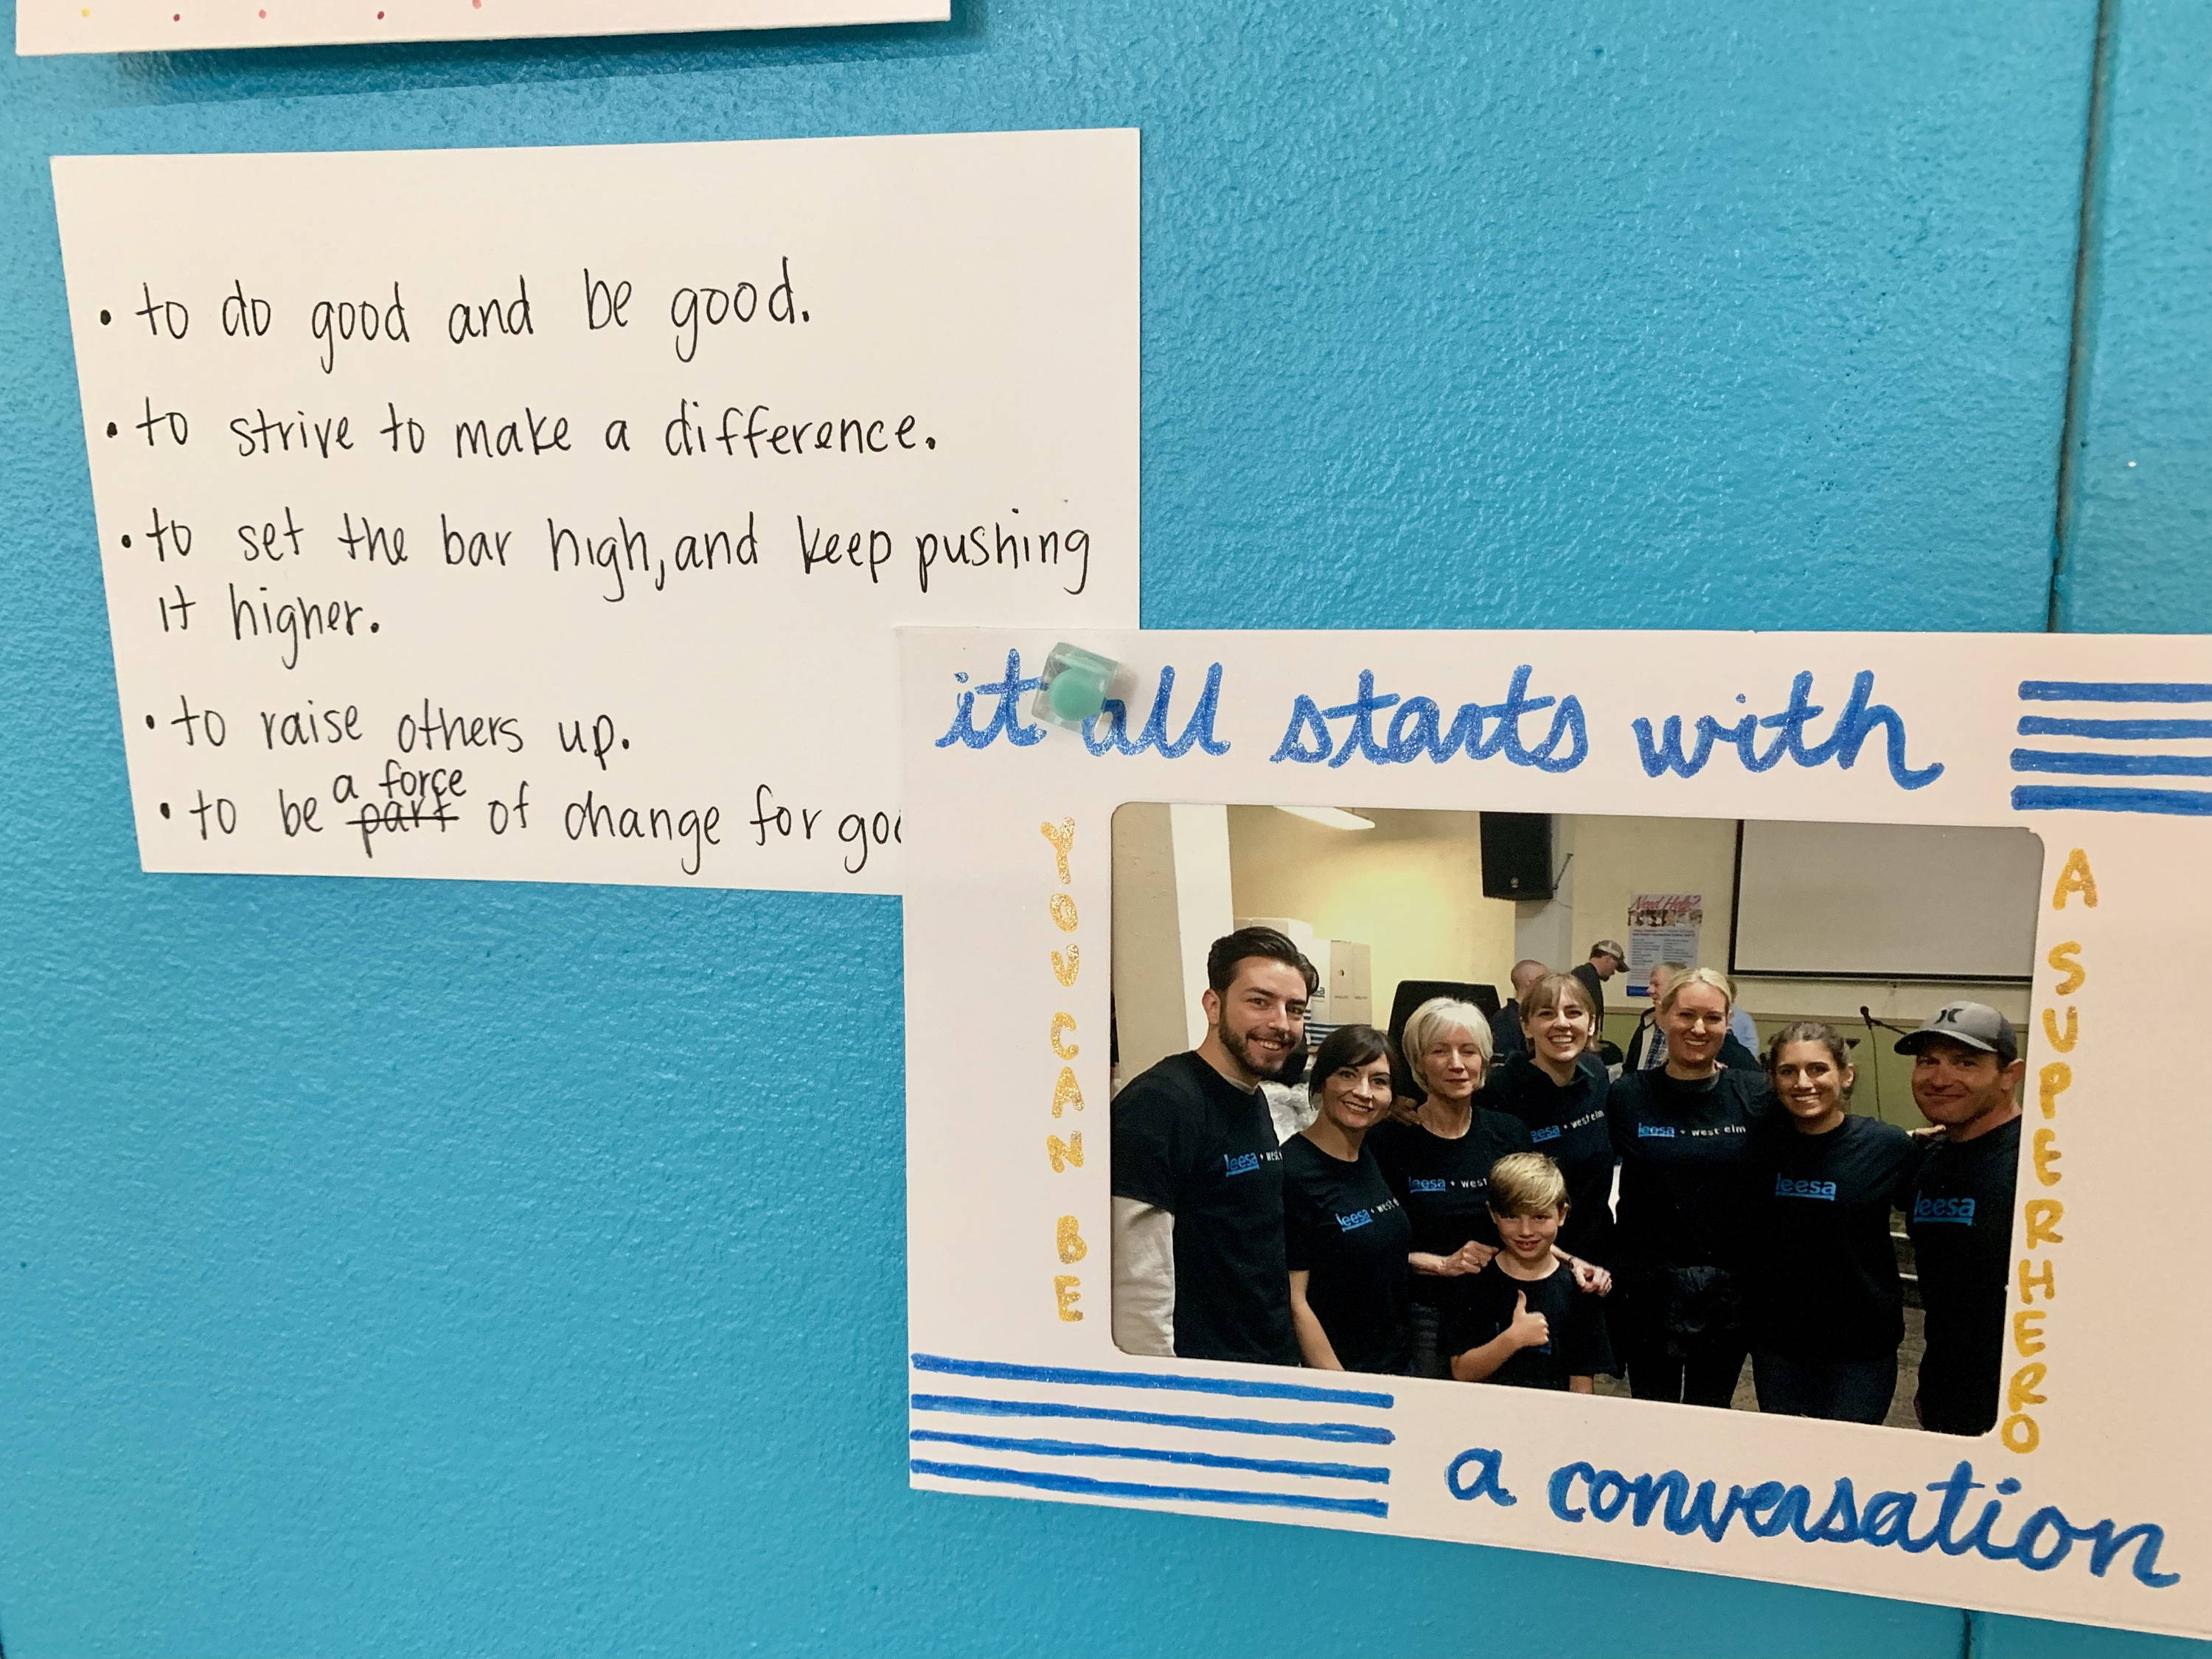 • to do good and be good.
• to strive to make a difference.
• to set the bar high, and keep pushing
it higher.
• to raise others up.
a force
• to be part of change for
it all starts with
YOU CAN BE
A SUPERHERO
Need Help?
leesa + west
leesa + west e
leesa + west
leesa + west elm
leesa + west elm
leesa
leesa
a conversation